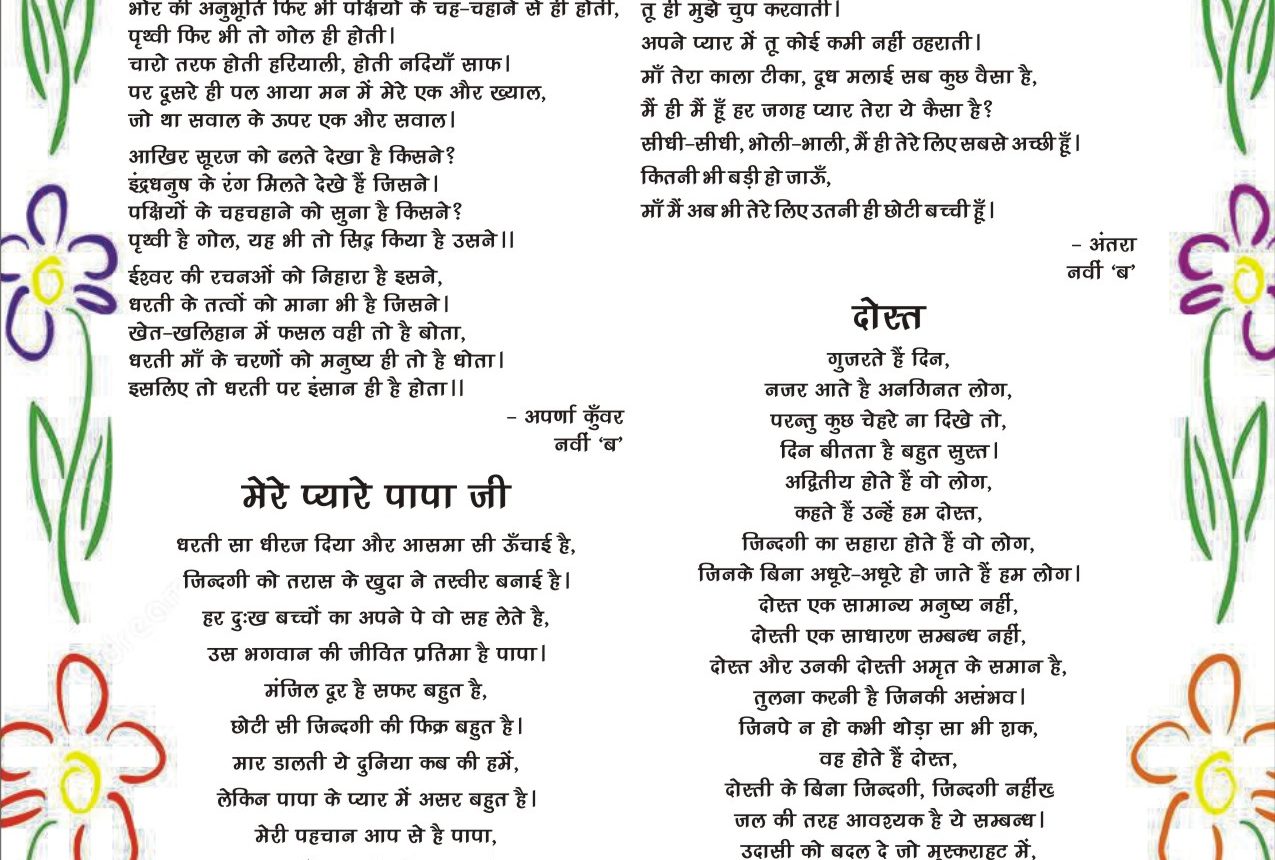 भोर की अनुभूति फिर भी पक्षियों के चह-चहाने से ही होती,
पृथ्वी फिर भी तो गोल ही होती।
चारो तरफ होती हरियाली, होती नदियाँ साफ।
पर दूसरे ही पल आया मन में मेरे एक और ख्याल,
जो था सवाल के ऊपर एक और सवाल।
आखिर सूरज को ढलते देखा है किसने?
इंद्रधनुष के रंग मिलते देखे हैं जिसने।
पक्षियों के चहचहाने को सुना है किसने?
पृथ्वी है गोल, यह भी तो सिद्ध किया है उसने।।
ईश्वर की रचनओं को निहारा है इसने,
धरती के तत्वों को माना भी है जिसने।
खेत-खलिहान में फसल वही तो है बोता,
धरती माँ के चरणों को मनुष्य ही तो है धोता।
इसलिए तो धरती पर इंसान ही है होता।।
- अपर्णा कुँवर
नवीं ‘ब’
मेरे प्यारे पापा जी
धरती सा धीरज दिया और आसमा सी ऊँचाई है,
जिन्दगी को तरास के खुदा ने तस्वीर बनाई है।
हर दुःख बच्चों का अपने पे वो सह लेते है,
उस भगवान की जीवित प्रतिमा है पापा।
मंजिल दूर है सफर बहुत है,
छोटी सी जिन्दगी की फिक्र बहुत है।
मार डालती ये दुनिया कब की हमें,
लेकिन पापा के प्यार में असर बहुत है।
मेरी पहचान आप से है पापा,
तू ही मुझे चुप करवाती।
अपने प्यार में तू कोई कमी नहीं ठहराती।
माँ तेरा काला टीका, दूध मलाई सब कुछ वैसा है,
मैं ही मैं हूँ हर जगह प्यार तेरा ये कैसा है?
सीधी-सीधी, भोली-भाली, मैं ही तेरे लिए सबसे अच्छी हूँ।
कितनी भी बड़ी हो जाऊँ,
माँ मैं अब भी तेरे लिए उतनी ही छोटी बच्ची हूँ।
- अंतरा
नवीं ‘ब’
दोस्त
गुजरते हैं दिन,
नजर आते है अनगिनत लोग,
परन्तु कुछ चेहरे ना दिखे तो,
दिन बीतता है बहुत सुस्त।
अद्वितीय होते हैं वो लोग,
कहते हैं उन्हें हम दोस्त,
जिन्दगी का सहारा होते हैं वो लोग,
जिनके बिना अधूरे-अधूरे हो जाते हैं हम लोग।
दोस्त एक सामान्य मनुष्य नहीं,
दोस्ती एक साधारण सम्बन्ध नहीं,
दोस्त और उनकी दोस्ती अमृत के समान है,
तुलना करनी है जिनकी असंभव।
जिनपे न हो कभी थोड़ा सा भी शक,
वह होते हैं दोस्त,
दोस्ती के बिना जिन्दगी, जिन्दगी नहींख
जल की तरह आवश्यक है ये सम्बन्ध।
उदासी को बदल दे जो मुस्कराहट में,